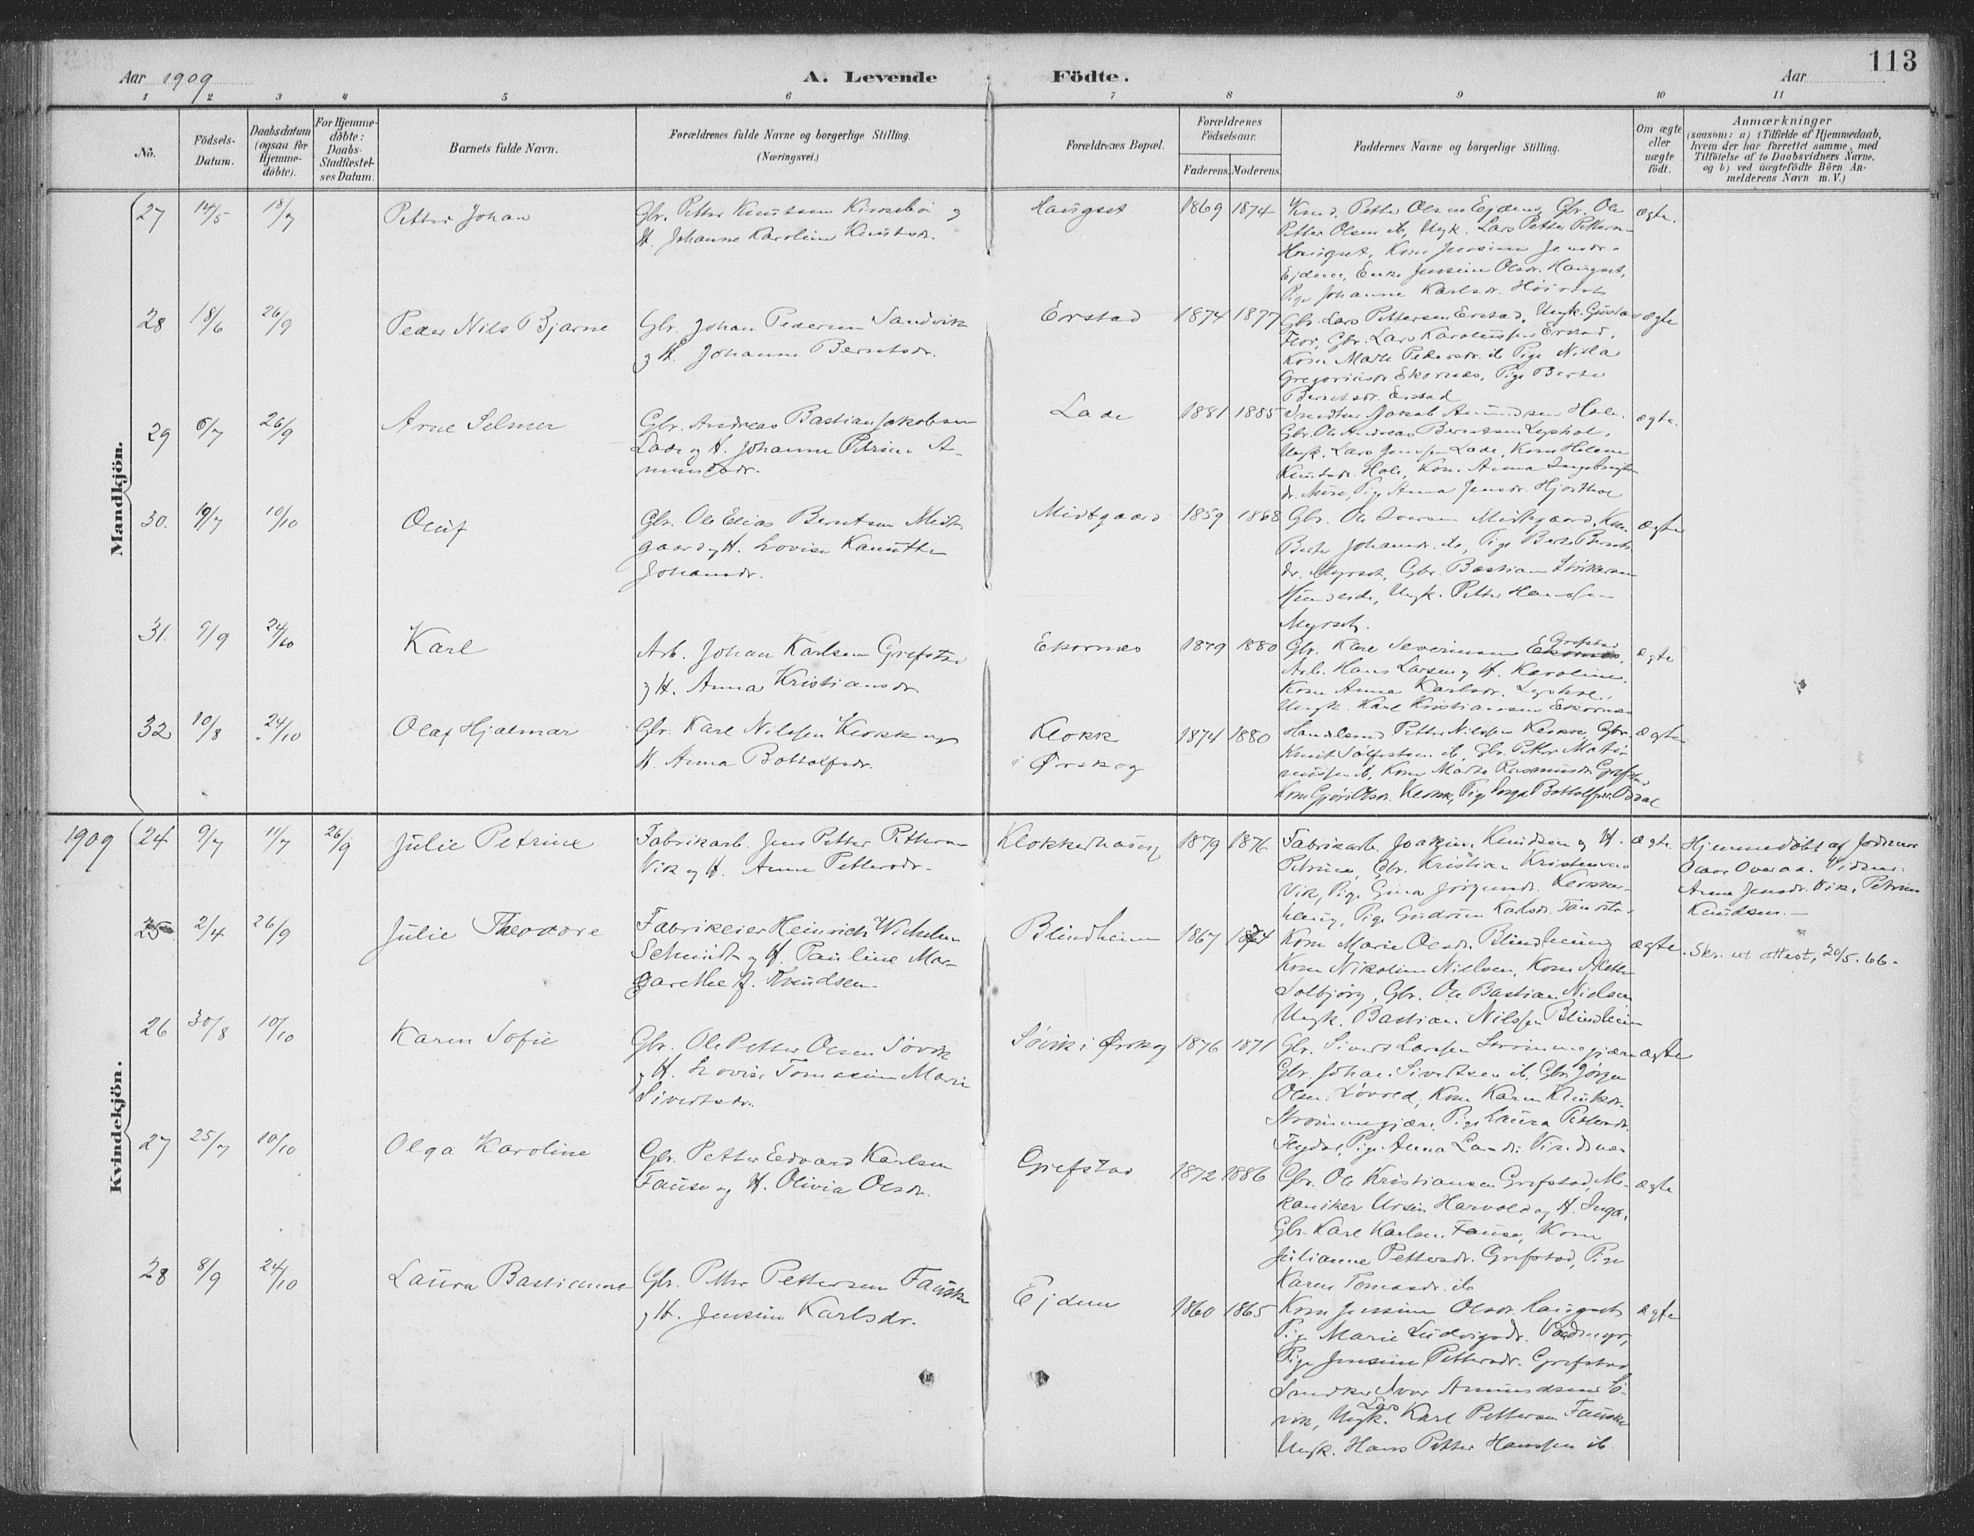 113
Aar 1909
A. Levende Födte.
Aar
1 2 3 4 5 6 7 8 9 10 11
No.
Födsels-
Datum.
Daabsdatum
(ogsaa for
Hjemme-
döbte).
For Hjemme-
döbte:
Daabs-
Stadfæstel-
ses Datum.
Barnets fulde Navn.
Forældrenes fulde Navne og borgerlige Stilling.
(Næringsvei.)
Forældrenes Bopæl.
Forældrenes
Födselsaar.
Faderens. Moderens.
Faddernes Navne og borgerlige Stilling.
Om ægte
eller
uægte
födt.
Anmærkninger
(saasom: a) i Tilfælde af Hjemmedaab,
hvem der har forrettet samme, med
Tilföielse af to Daabsvidners Navne,
og b) ved uægtefödte Börn An-
melderens Navn m. V.)
Mandkjön.
27 14/5 18/7 Petter Johan
Gbr. Petter Knutsen Kirsebø og
H. Johanne Karoline Knutsdr.
Haugset 1869 1874
Petter Olsen Ejdem, Gbr. Ole
Petter Olsen ib, Ungk. Lars Petter Pettersen
Haugset, Kone Jensine Jensdr.
Ejdem, Enke Jensine Olsdr. Haugset,
Pige Johanne Karlsdr.
ægte.
28 18/6 26/9 Peder Nils Bjarne
Gbr. Johan Pedersen Sandvik
og H. Johanne Berntsdr.
Erstad 1874 1877
Gbr. Lars Pettersen Erstad, Ungk. Gustav
Flor, Gbr. Lars Karolussen Erstad,
Kone Marte Pedersdr. ib Pige Nilla
Gregoriusdr. Ekornes, Pige Berte
Berntsdr. Erstad
ægte
29 6/7 26/9 Arne Selmer
Gbr. Andreas Bastian Jakobsen
Lade og H. Johanne Petrine A-
mundsdr.
Lade 1881 1885
Jakob Amundsen Hole.
Gbr. Ole Andreas Berntsen
Ungk. Lars Jensen Lade, Kone Helene
Knutsdr. Hole, Kone Anna
dr. Pige Anna Jensdr.
ægte.
30. 19/7 10/10 Oluf
Gbr. Ole Elias Berntsen Midt
gaard og H. Lovise Kanutte
Johansdr.
Midtgaard 1859 1868
Gbr. Ole Iversen Midtgaard, Kone
Berte Johansdr. ib, Pige Berte Bernts
dr. Myrset, Gbr. Bastian
Ungk. Petter Hansen
Myrset.
ægte
31. 9/9 24/10 Karl
Arb. Johan Karlsen Grefstad
og H. Anna Kristiansdr.
Ekornes 1879 1880
Gbr. Karl Severinsen Grefstad
Arb. Hans Larsen og H. Karoline,
Kone Anna Karlsdr.
Ungk. Karl Kristiansen Ekornes
ægte
32 10/8 24/10 Olaf Hjalmar
Gbr. Karl Nilssen Klokk og
H. Anna Bottolfsdr.
Klokk
i Ørskog
1874 1880
Petter Nilssen Klokk, Gbr.
Knut ib, Gbr. Petter
ib, Kone Marte Rasmusdr. Grefstad
Kone Olsdr. Klokk, Pige
ægte
Kvindekjön.
1909 24 9/7 11/7 26/9 Julie Petrine
Fabrikarb. Jens Petter Pettersen
Vik og H. Anne Pettersdr.
Klokkerhaug 1879 1876
Fabrikarb. Joakim Knudsen og H.
Petrine, Gbr. Kristian Kristensen
Vik, Pige Gina Jørgensdr. Klokker-
haug, Pige Gudrun Karlsdr.
ægte
Hjemmedøbt af Jordmor
Vidner:
Anne Jensdr. Vik, Petrine
Knudsen.
25 2/4 26/9 Julie Theodore
Fabrikeier Heinrich Wilhelm
Schmidt og H. Pauline Mar-
garethe f. Knudsen.
Blindheim 1867 1874
Kone Marie Olsdr. Blindheim
Kone Nikoline Nielsen, Kone
Solbjørg, Gbr. Ole Bastian Nielsen
Ungk. Bastian Nilssen Blindheim
ægte.
Skr. ut attest, 20/5. 66.
26 30/8 10/10 Karen Sofie
Gbr. Ole Petter Olsen Søvik
og H. Lovise Tomasine Marie
Sivertsdr.
Søvik i Ørskog 1876 1871
Gbr. Sivert Larssen Strømmegjære
Gbr. Johan Sivertsen ib, Gbr. Jørgen
Olsen Kone Karen Knutsdr.
Strømmegjære, Pige Laura Pettersdr.
Pige Anna
ægte
27 25/7 10/10 Olga Karoline
Gbr. Petter Edvard Karlsen
Fause og H. Olivia Olsdr.
Grefstad 1872 1886
Gbr. Ole Kristiansen Grefstad, Me-
kaniker Ursin Harvold og H. Inga,
Gbr. Karl Karlsen Fause, Kone
Julianne Pettersdr. Grefstad, Pige
Karen Tomasdr. ib
ægte
28 8/9 24/10 Laura Bastianne
Gbr. Petter Pettersen Fauske
og H. Jensine Karlsdr.
Ejdem 1860 1865
Kone Jensine Olsdr. Haugset
Pige Marie Ludvigsdr.
Pige Jensine Pettersdr. Grefstad
Snedker Ivar Amundsen Sø-
vik, Ungk. Lars Karl Pettersen Fauske
Ungk. Hans Petter Hanssen ib.
ægte